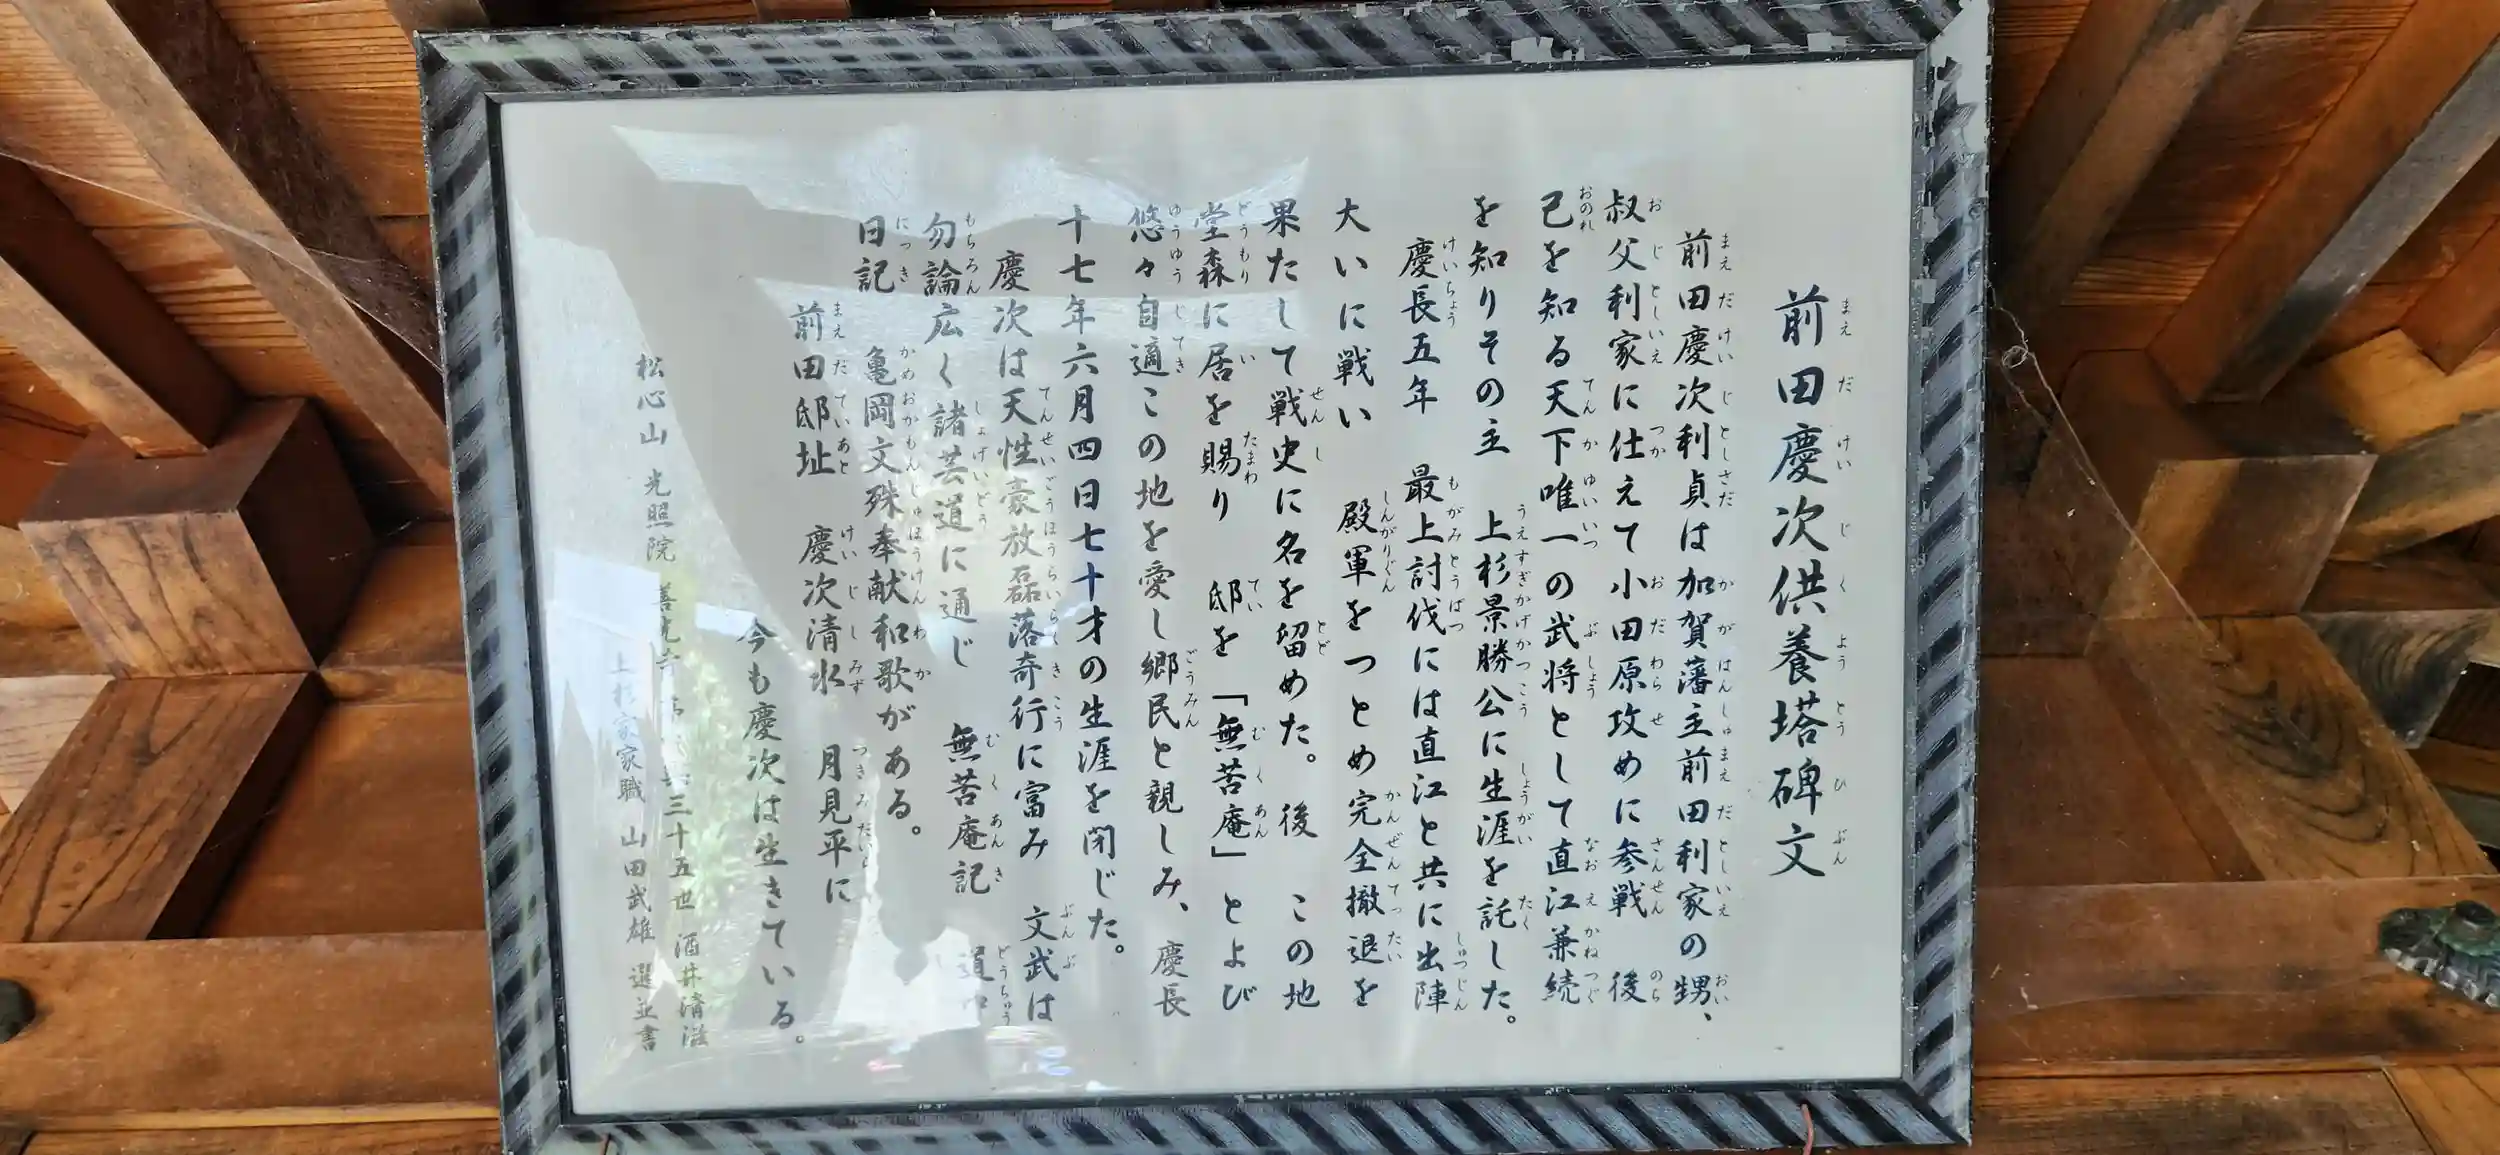 前田慶次供養塔碑文
前田慶次利貞は加賀藩主前田利家の甥、
叔父利家に仕えて小田原攻めに参戦 後
己を知る天下唯一の武将として直江兼続
を知りその主 上杉景勝公に生涯を託した。
慶長五年 最上討伐には直江と共に出陣
大いに戦い 殿軍をつとめ完全撤退を
果たして戦史に名を留めた。後 この地
堂森に居を賜り 邸を「無苦庵」とよび
悠々自適この地を愛し郷民と親しみ、慶長
十七年六月四日七十才の生涯を閉じた。
慶次は天性豪放磊落奇行に富み 文武は
勿論広く諸芸道に通じ 無苦庵記 道中
日記 亀岡文殊奉献和歌がある。
前田邸址 慶次清水 月見平に
今も慶次は生きている。
松心山 光照院 善光寺 三十五世 酒井清滋
上杉家家職 山田武雄 選並書